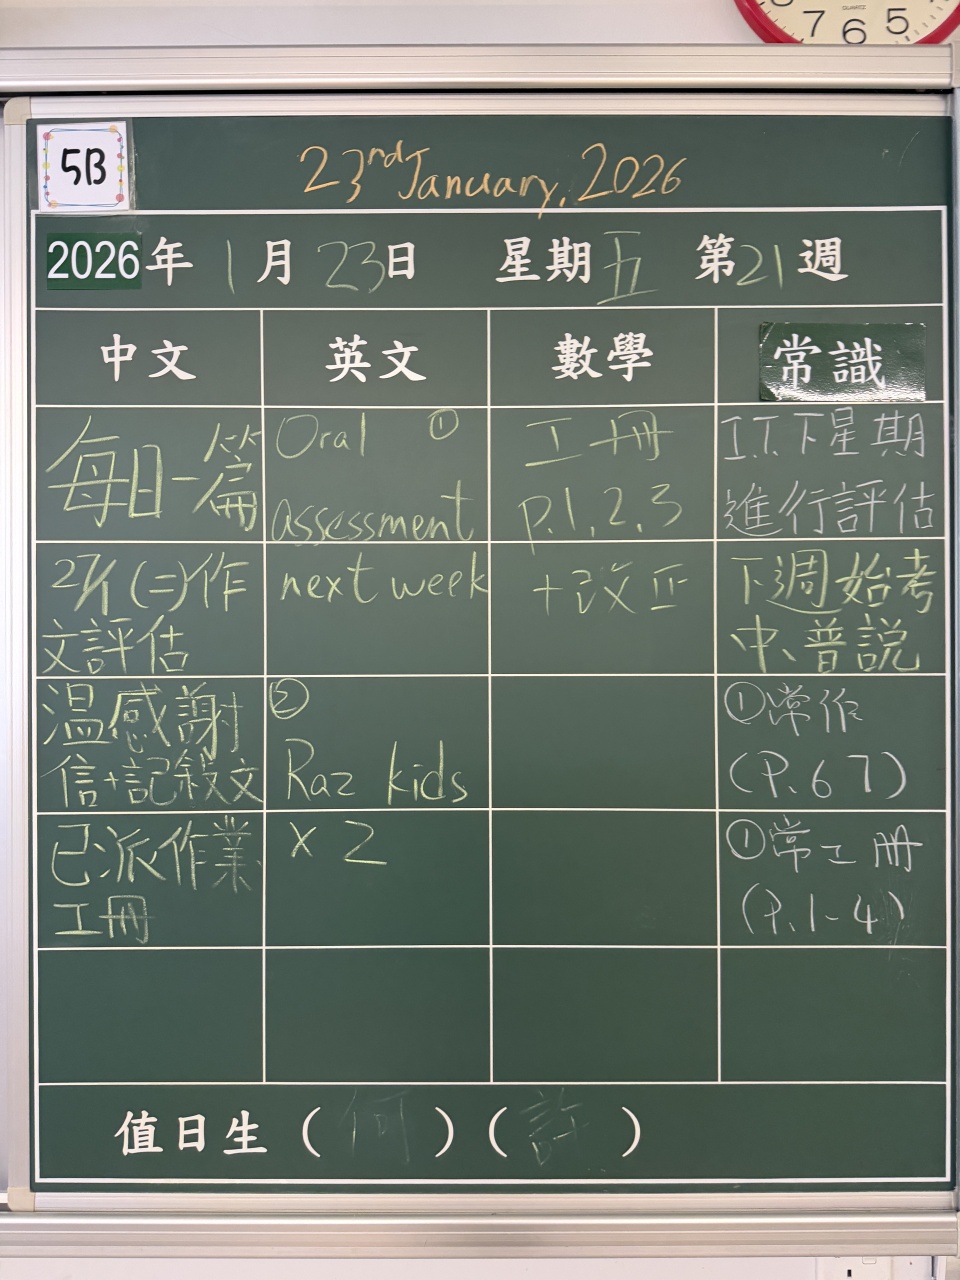 7 6 5
QUARTZ
5B
23rd January, 2026
2026年1月23日 星期五 第21週
中文 英文 數學 常識
每日一篇
27/1(二)作
文評估
温感謝
信+記敍文
已派作業
工冊
Oral ①
assessment
next week
②
Raz kids
x 2
工冊
p.1,2,3
+改正
I.T.下星期
進行評估
下週始考
中、普說
①常作
(P.67)
①常工冊
(P.1-4)
值日生(何)(許)